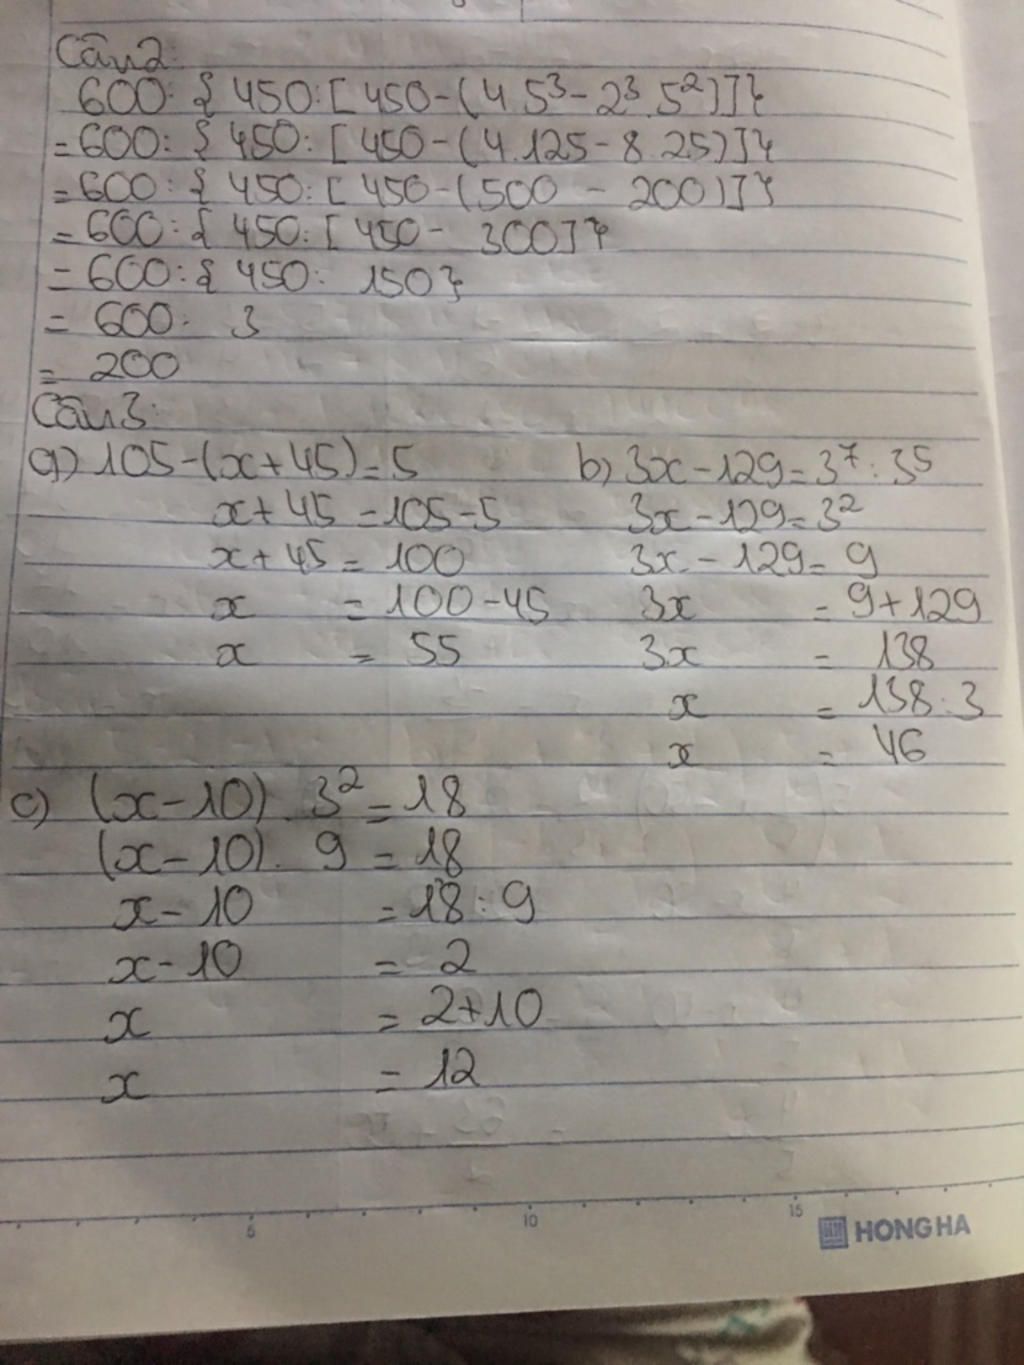 Câu 2:
600: { 450:[450-(4.5³-2³.5²)]}
=600: { 450: [450-(4.125-8.25)]}
=600: { 450: [450-(500 - 200)]}
=600: { 450: [450- 300]}
=600: { 450: 150}
= 600: 3
= 200
Câu 3:
a) 105-(x+45)=5
x+45=105-5
x+45=100
x =100-45
x = 55
b) 3x-129=3⁷:3⁵
3x-129=3²
3x-129=9
3x =9+129
3x = 138
x = 138:3
x = 46
c) (x-10).3²=18
(x-10).9=18
x-10 =18:9
x-10 = 2
x = 2+10
x = 12
5 10 15
HONG HA